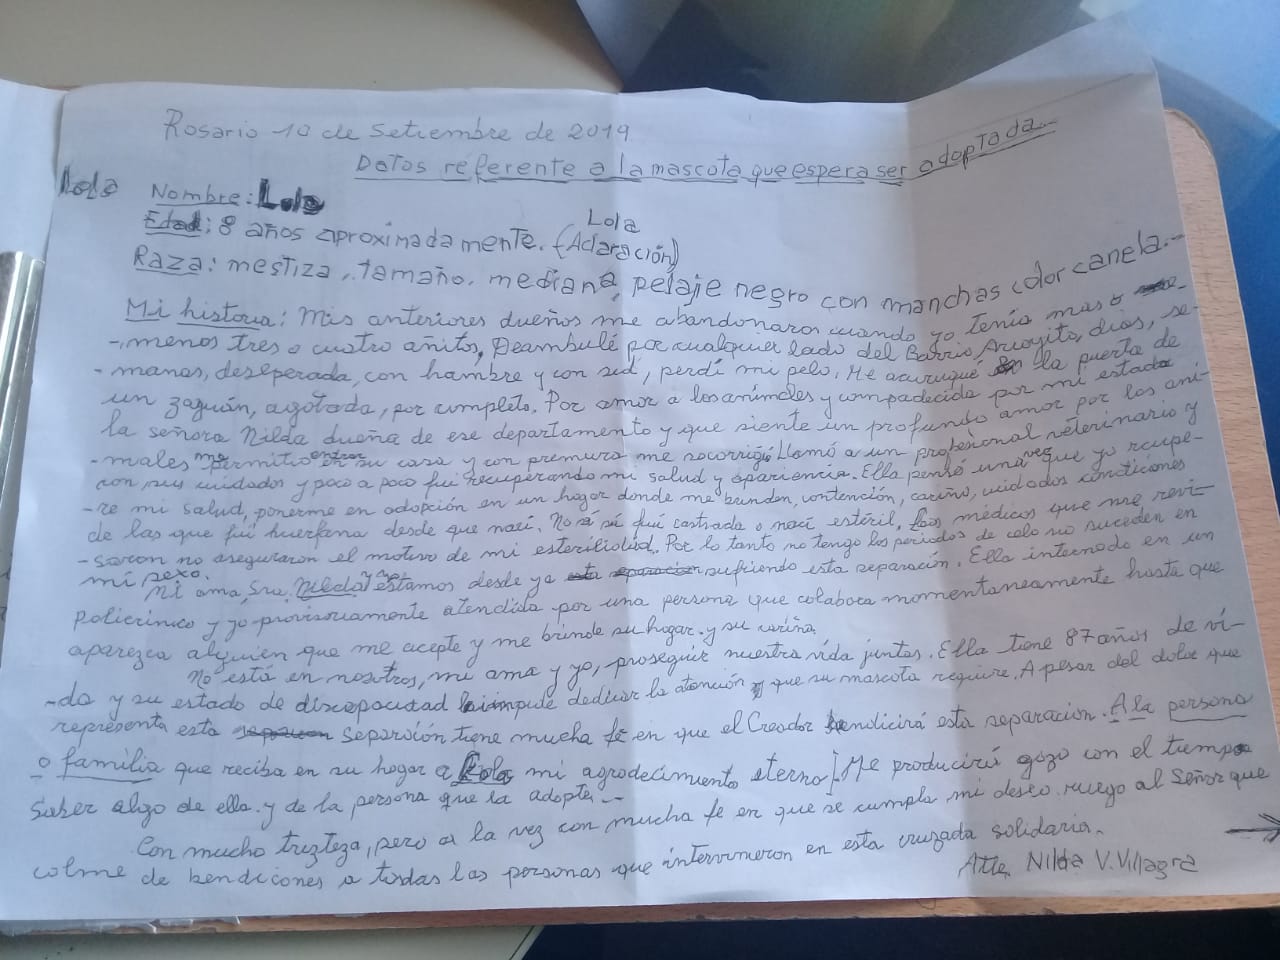 Rosario 10 de setiembre de 2019
Datos referente a la mascota que espera ser adoptada.-
Lola Nombre: Lola
Lola
Edad: 8 años aproximadamente. (Aclaración)
Raza: mestiza, tamaño, mediana, pelaje negro con manchas color canela.-
Mi historia: Mis anteriores dueños me abandonaron cuando yo tenía mas o
-menos tres o cuatro añitos, Deambulé por cualquier lado del Barrio Arroyito, dias, se-
- manas, desesperada, con hambre y con sed, perdí mi pelo. Me acurruqué en la puerta de
un zaguán, agotada, por completo. Por amor a los animales y compadecida por mi estado
la señora Nilda dueña de ese departamento y que siente un profundo amor por los ani-
- males me permitio entrar en su casa y con premura me socorrió. Llamó a un profesional veterinario y
con sus cuidados y poco a poco fuí recuperando mi salud y apariencia. Ella pensó una vez que yo recupe-
- re mi salud, ponerme en adopción en un hogar donde me brinden, contención, cariño, cuidados
de las que fuí huerfana desde que nací. No sé si fuí castrada o nací estéril. Los médicos que me revi-
- saron no aseguraron el motivo de mi esterilidad. Por lo tanto no tengo los periodos de celo no suceden en
mi sexo.
Mi ama, Sra. Nilda y yo estamos desde ya sufriendo esta separación. Ella internada en un
policlínico y yo provisoriamente atendida por una persona que colabora momentaneamente hasta que
aparezca alguien que me acepte y me brinde su hogar y su cariño.
No está en nosotros, mi ama y yo, proseguir nuestra vida juntas. Ella tiene 87 años de vi-
- da y su estado de discapacidad le impide dedicar la atención que su mascota requiere. A pesar del dolor que
representa esta separación tiene mucha fé en que el Creador bendicirá esta separación. A la persona
o familia que reciba en su hogar a Lola mi agradecimiento eterno. Me producirá gozo con el tiempo
saber algo de ella y de la persona que la adopte.-
Con mucho trizteza, pero a la vez con mucha fe en que se cumpla mi deseo ruego al Señor que
colme de bendiciones a todas las personas que intervinieron en esta cruzada solidaria.
Atte. Nilda V. Villagra